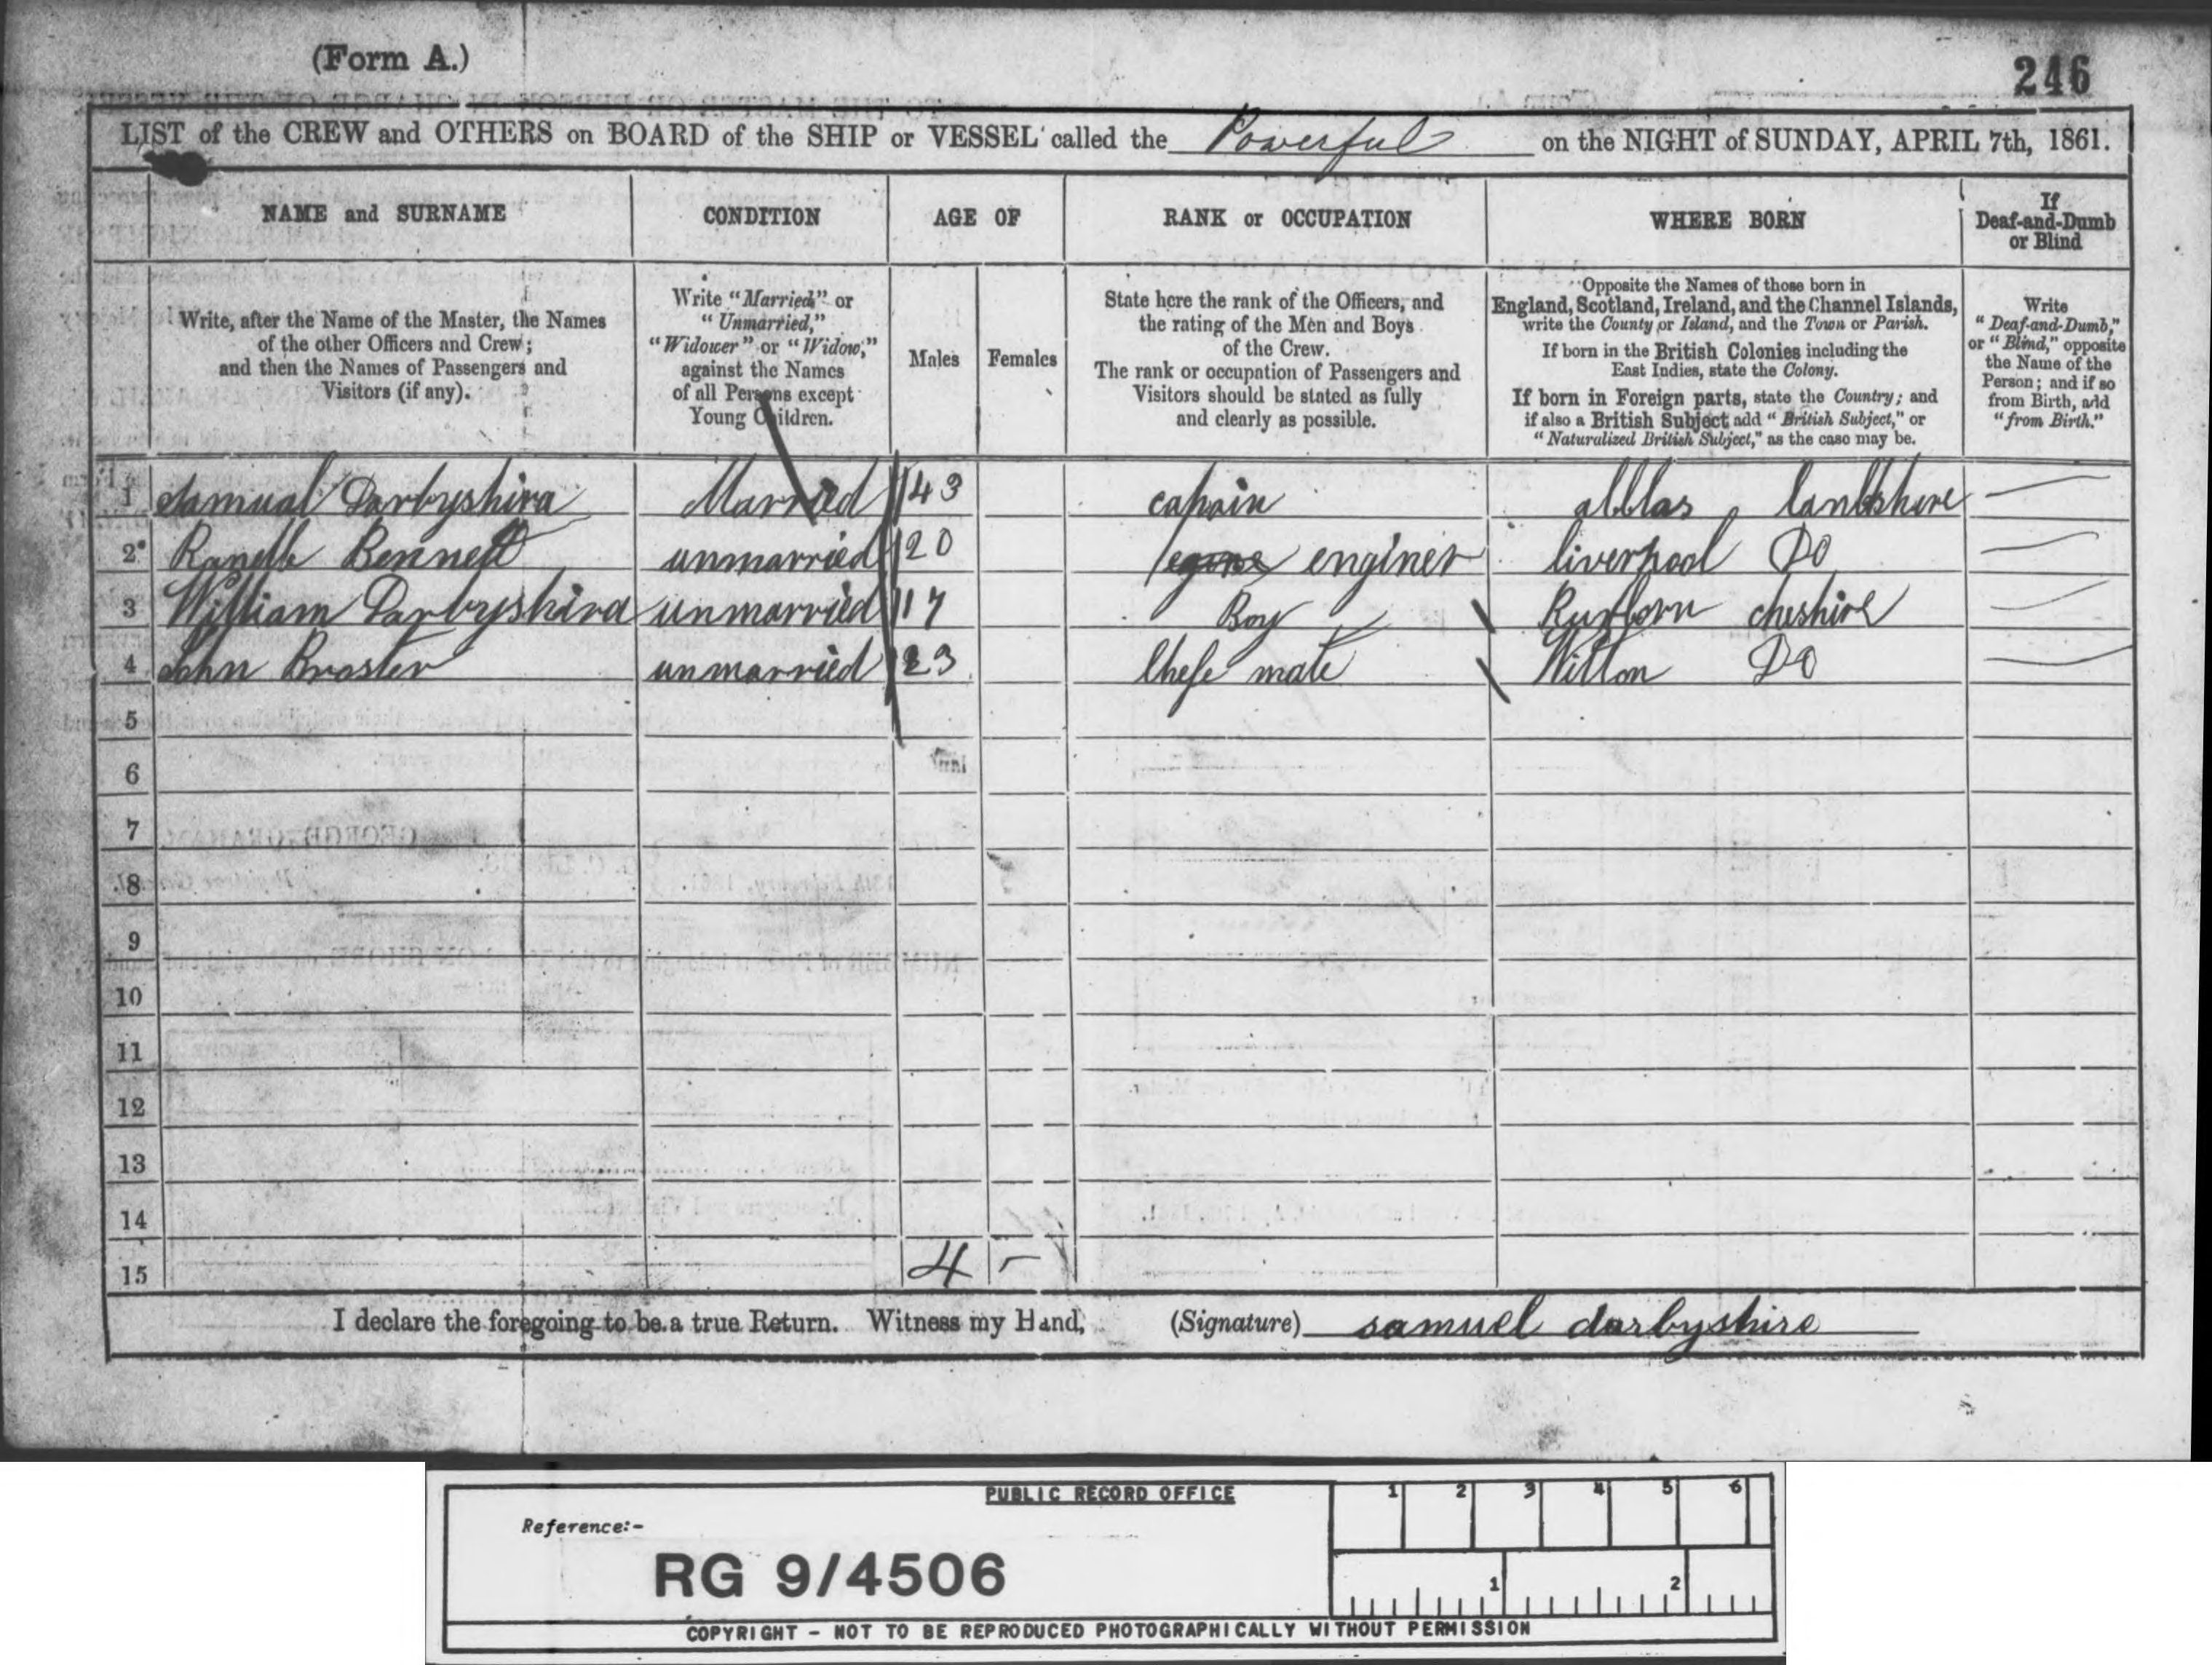 (Form A.)
246
LIST of the CREW and OTHERS on BOARD of the SHIP or VESSEL called the Powerful on the NIGHT of SUNDAY, APRIL 7th, 1861.
NAME and SURNAME
CONDITION
AGE OF
RANK or OCCUPATION
WHERE BORN
If
Deaf-and-Dumb
or Blind
Write, after the Name of the Master, the Names
of the other Officers and Crew;
and then the Names of Passengers and
Visitors (if any).
Write "Married" or
"Unmarried,"
"Widower" or "Widow,"
against the Names
of all Persons except
Young Children.
Males
Females
State here the rank of the Officers, and
the rating of the Men and Boys
of the Crew.
The rank or occupation of Passengers and
Visitors should be stated as fully
and clearly as possible.
Opposite the Names of those born in
England, Scotland, Ireland, and the Channel Islands,
write the County or Island, and the Town or Parish.
If born in the British Colonies including the
East Indies, state the Colony.
If born in Foreign parts, state the Country; and
if also a British Subject add "British Subject," or
"Naturalized British Subject," as the case may be.
Write
"Deaf-and-Dumb,"
or "Blind," opposite
the Name of the
Person; and if so
from Birth, add
"from Birth."
1 Samual Darbyshira Married 43 capain
2 Bennett unmarried 20 enginer liverpool Do
3 William Darbyshira unmarried 17 Boy cheshire
4 John Broster unmarried 23 Chefe mate Witton Do
5
6
7
8
9
10
11
12
13
14
15 4 -
I declare the foregoing to be a true Return. Witness my Hand, (Signature) samuel darbyshire
PUBLIC RECORD OFFICE
1 2 3 4 5 6
Reference:-
RG 9/4506
1 2
COPYRIGHT - NOT TO BE REPRODUCED PHOTOGRAPHICALLY WITHOUT PERMISSION